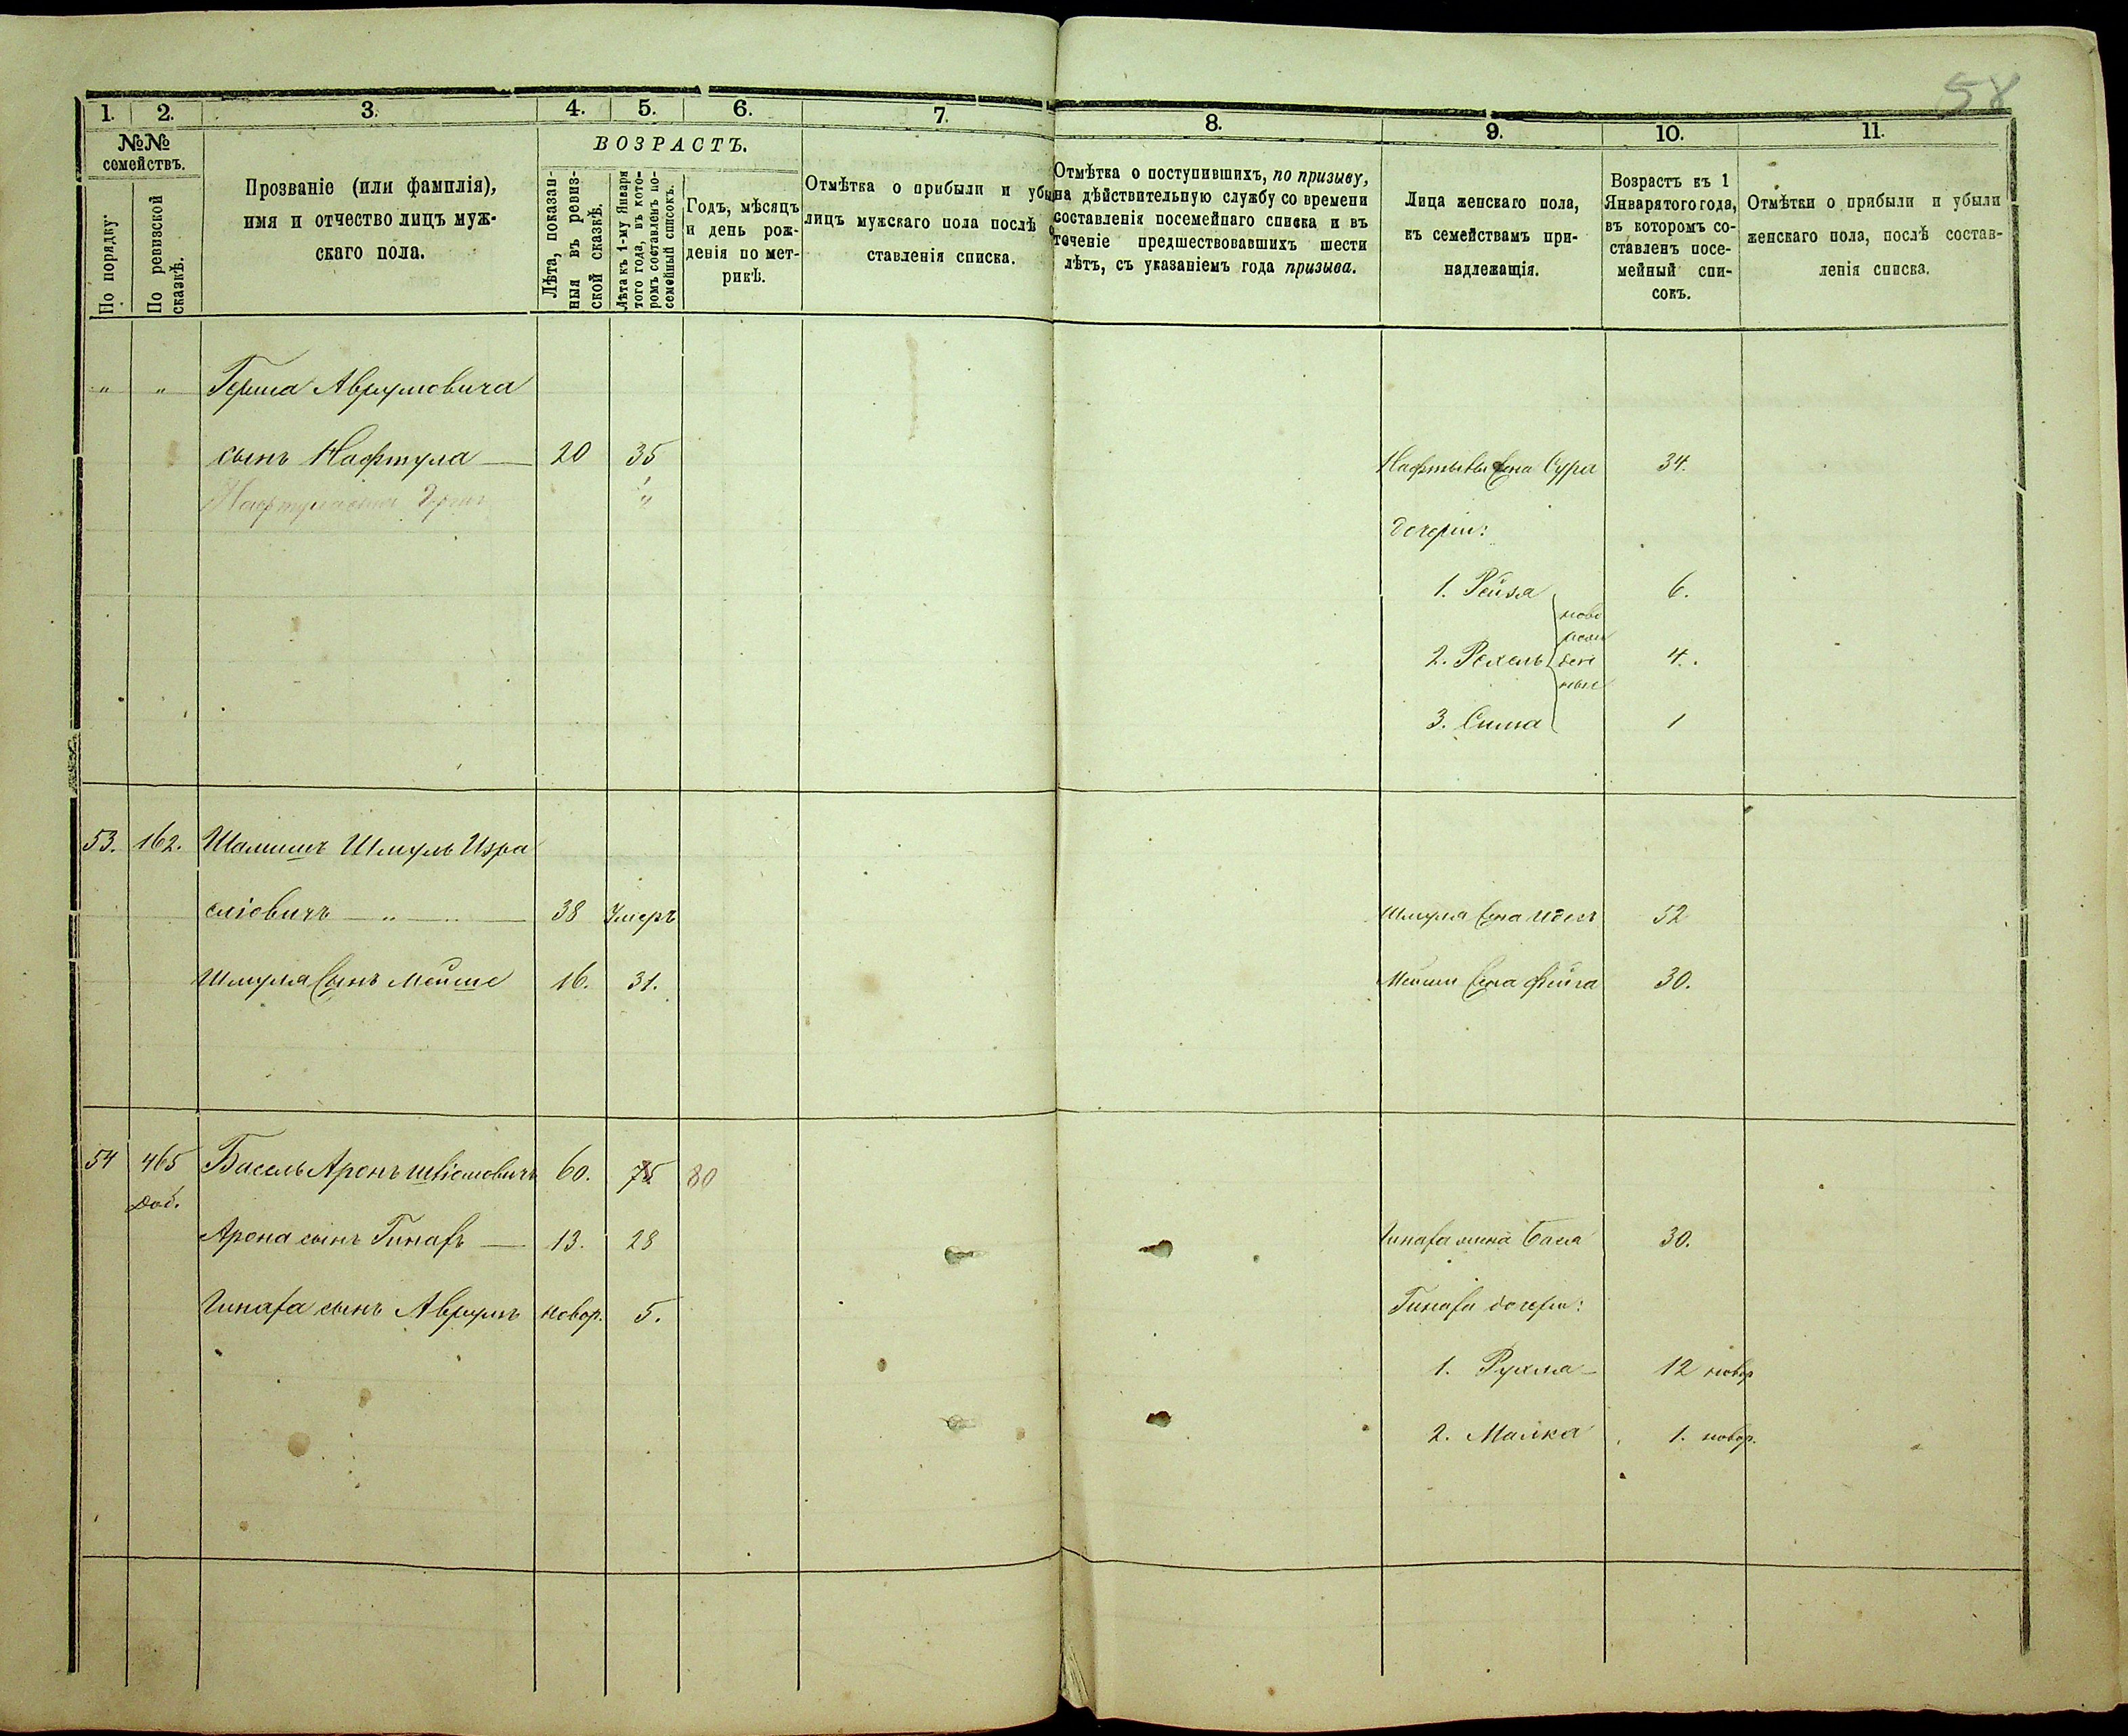 58
1. 2. 3. 4. 5. 6. 7. 8. 9. 10. 11.
№№ семействъ.
По порядку.
По ревизской сказкѣ.
Прозваніе (или фамилія),
имя и отчество лицъ муж-
скаго пола.
ВОЗРАСТЪ.
Лѣта, показан-
ныя въ ревиз-
ской сказкѣ.
Лѣта къ 1-му Января
того года, въ кото-
ромъ составленъ по-
семейный списокъ.
Годъ, мѣсяцъ
и день рож-
денія по мет-
рикѣ.
Отмѣтка о прибыли и убыли
лицъ мужскаго пола послѣ со-
ставленія списка.
Отмѣтка о поступившихъ, по призыву,
на дѣйствительную службу со времени
составленія посемейнаго списка и въ
теченіе предшествовавшихъ шести
лѣтъ, съ указаніемъ года призыва.
Лица женскаго пола,
къ семействамъ при-
надлежащія.
Возрастъ къ 1
Января того года,
въ которомъ со-
ставленъ посе-
мейный спи-
сокъ.
Отмѣтки о прибыли и убыли
женскаго пола, послѣ состав-
ленія списка.
" " Герша Аврумовича
сынъ Нафтула 20 35 Сура 34.
Дочери:
1. Рейза 6.
2. Рехель 4.
3. Сима 1
53. 162. Шамишъ Шмуль Изра
еліовичъ 38 Умеръ Шмуля жена Идесъ 52
Шмуля сынъ Мейше 16. 31. Мейши жена Фейга 30.
54 465 Басель Аронъ 60. 75 80
доб.
Арона сынъ 13. 28 жена Бася 30.
сынъ Аврумъ новор. 5. дочери:
1. Рухля 12 новор
2. Малка 1. новор.